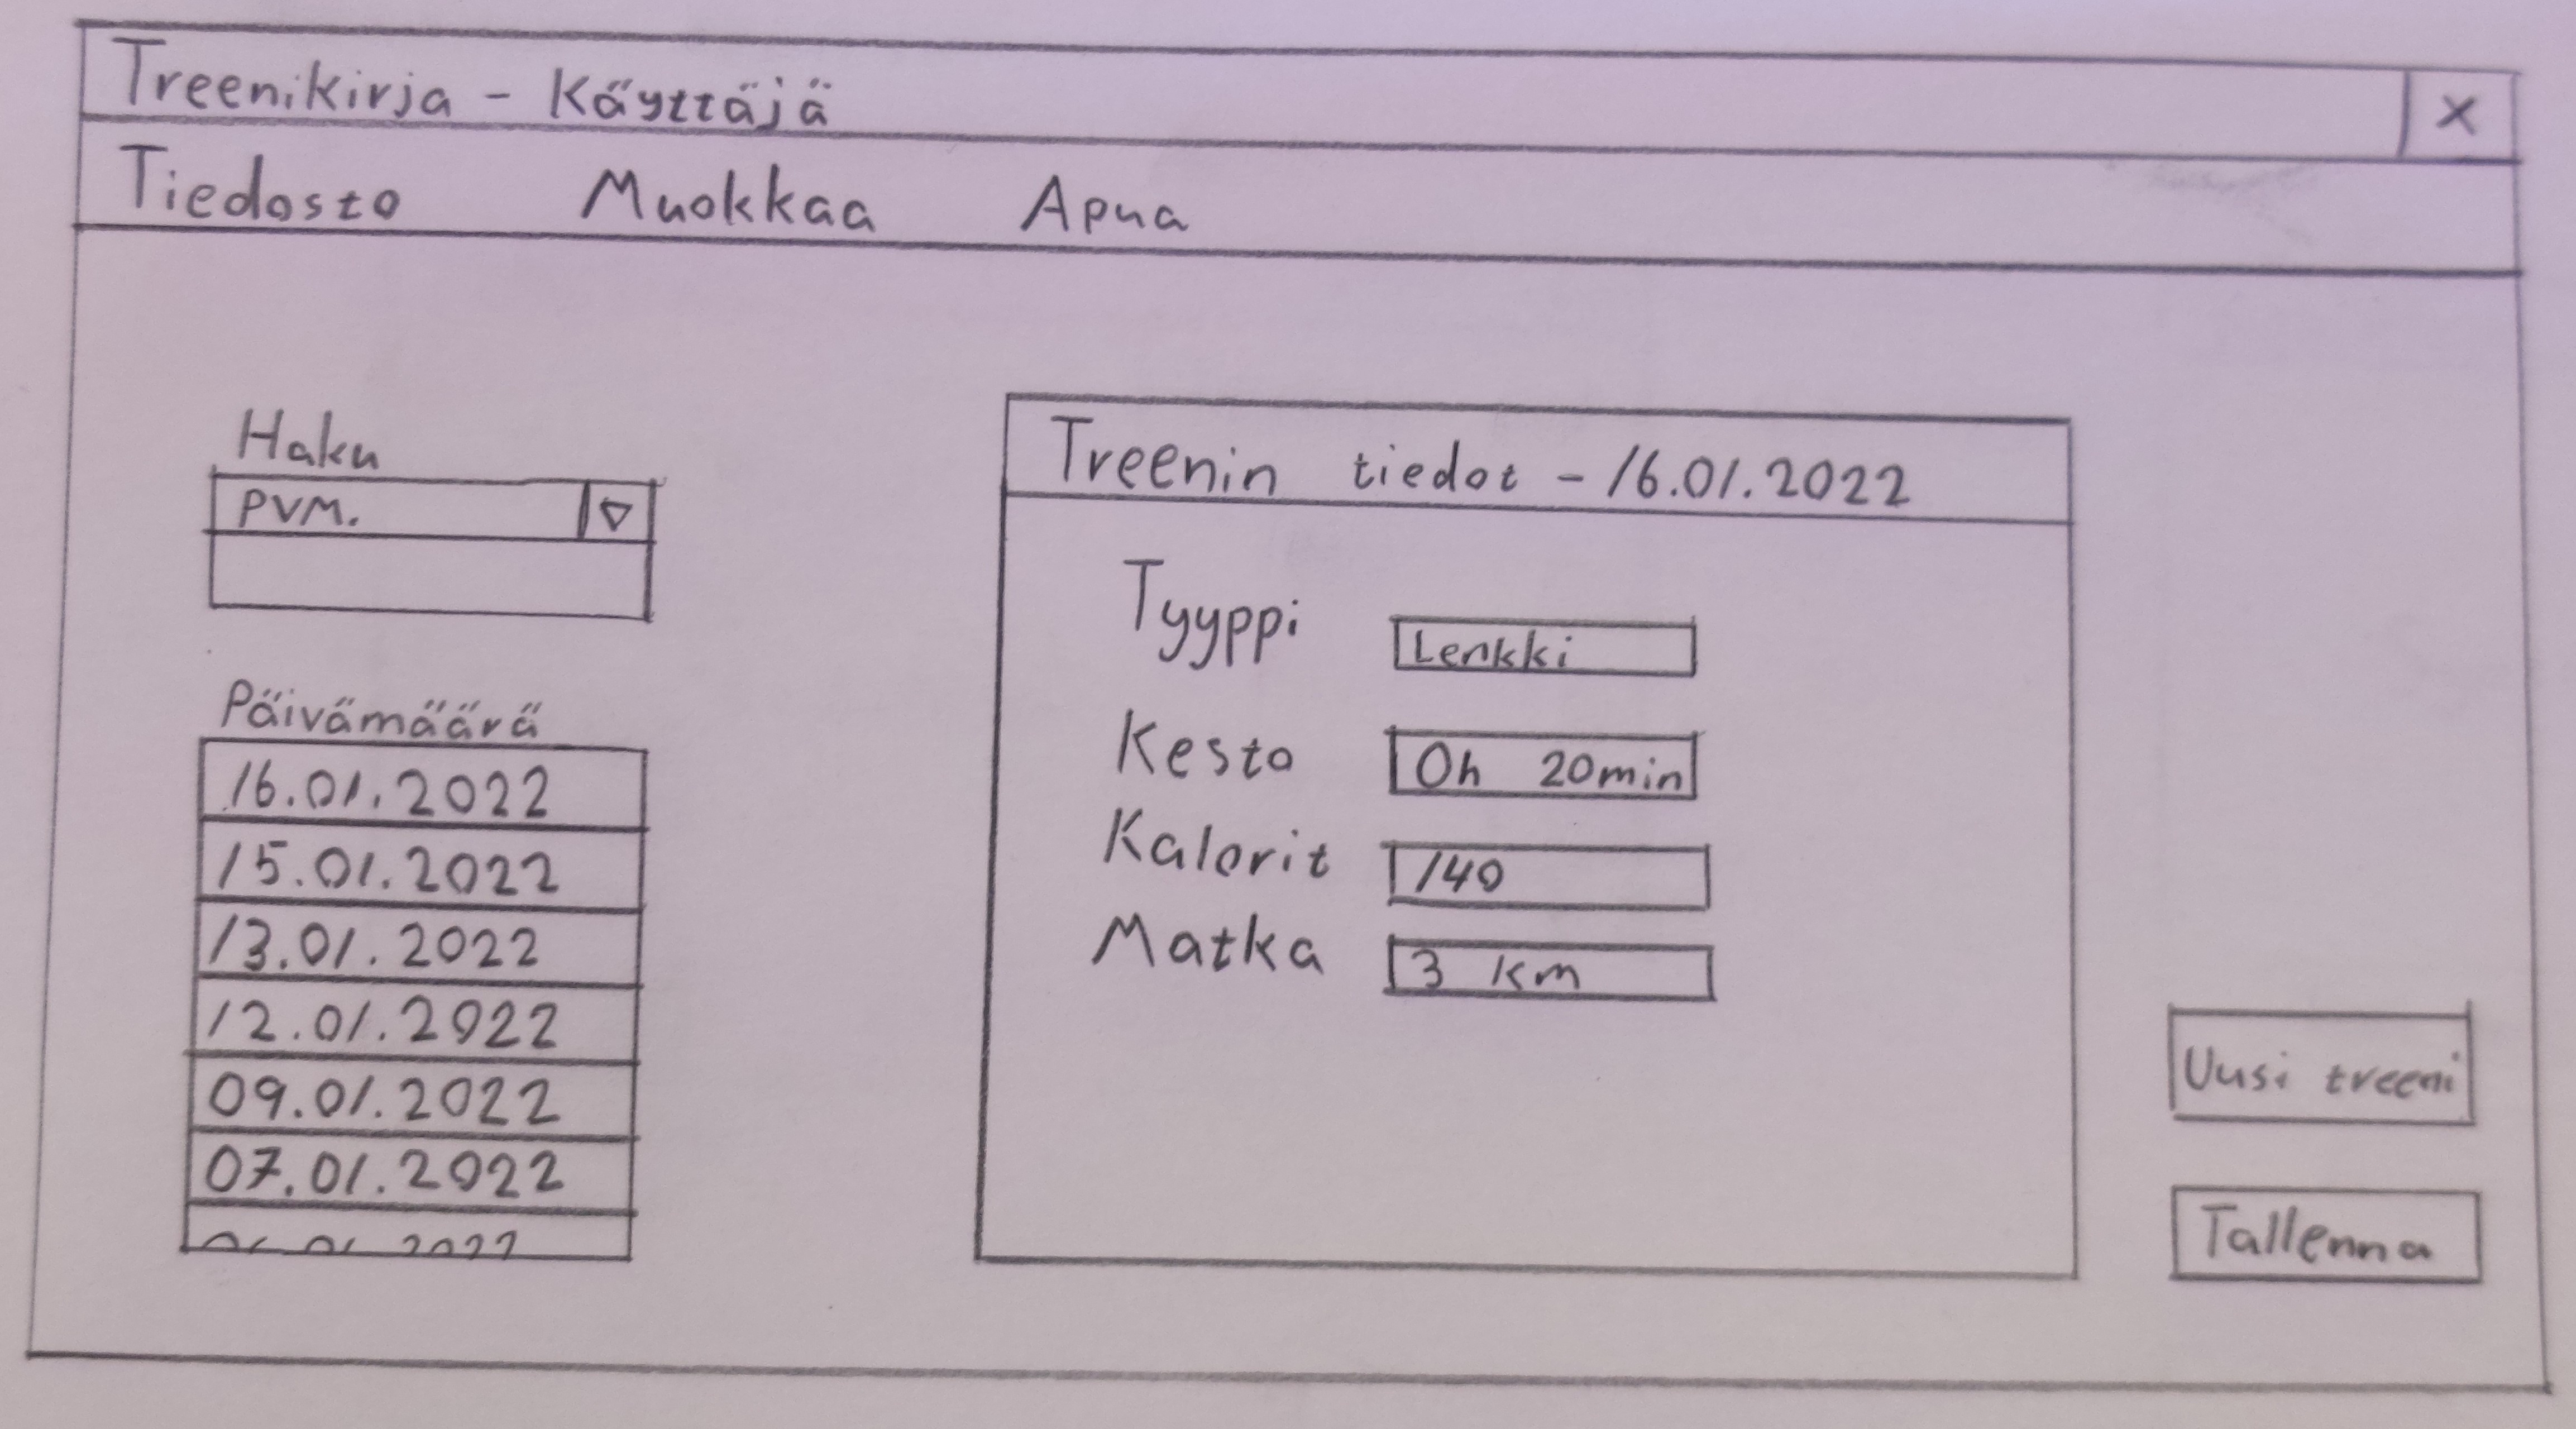 Treenikirja - Käyttäjä X
Tiedosto Muokkaa Apua
Haku
PVM.
Päivämäärä
16.01.2022
15.01.2022
13.01.2022
12.01.2022
09.01.2022
07.01.2022
Treenin tiedot - 16.01.2022
Tyyppi Lenkki
Kesto 0h 20min
Kalorit 140
Matka 3 km
Uusi treeni
Tallenna